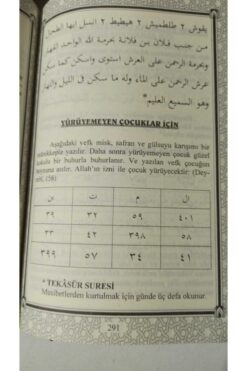 يقوش ٢ طلطميش ٢ هيطيط ٢ انسل ايها الطحال
من جنب فلان بن فلانة بحرمة الله الواحد القهار
وبحرمة الرحمن على العرش استوى واسكن كما سكن
عرش الرحمن على الماء وله ما سكن في الليل والنهار
وهو السميع العليم*
YÜRÜYEMEYEN ÇOCUKLAR İÇİN
Aşağıdaki vefk misk, safran ve gülsuyu karışımı bir
mürekkeple yazılır. Daha sonra yürüyemeyen çocuk güzel
kokulu bir buhurla buhurlanır. Ve yazılan vefk çocuğun
boynuna asılır. Allah'ın izni ile çocuk yürüyecektir. (Dey-
rebî, 258)
ال م ت ين
٤٠١ ٥٩ ٣٩ ٣٢
٥٨ ٩٨ ٣٣ ٤٢
٣٤ ٤١ ٥٧ ٣٩٩
* TEKÂSÜR SURESİ
Musibetlerden kurtulmak için günde üç defa okunur.
291